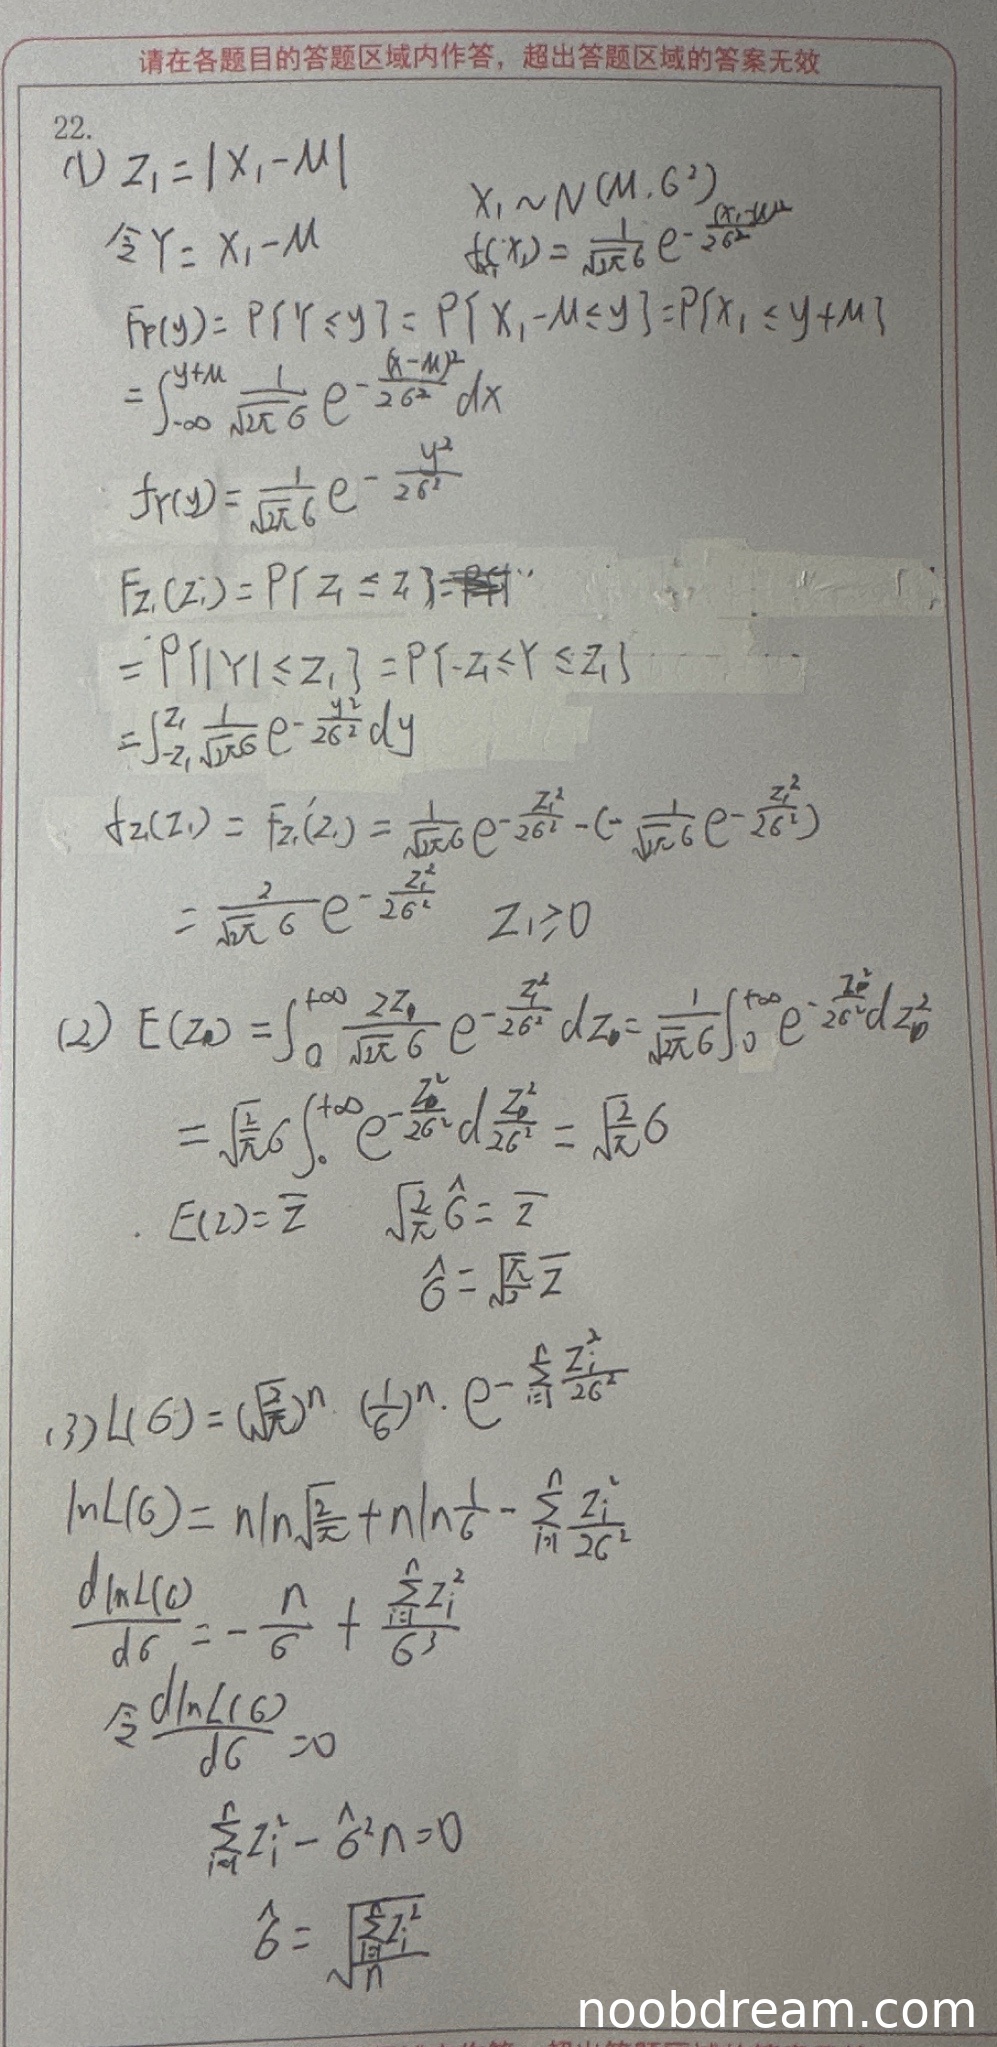 请在各题目的答题区域内作答，超出答题区域的答案无效
22.
(1) Z₁ = |X₁ - μ|
X₁ ~ N(μ, σ²)
令Y = X₁ - μ
f(x₁) = \frac{1}{\sqrt{2π}σ} e^{-\frac{(x₁-μ)²}{2σ²}}
F_Y(y) = P{Y ≤ y} = P{X₁ - μ ≤ y} = P{X₁ ≤ y + μ}
= ∫_{-∞}^{y+μ} \frac{1}{\sqrt{2π}σ} e^{-\frac{(x-μ)²}{2σ²}} dx
f_Y(y) = \frac{1}{\sqrt{2π}σ} e^{-\frac{y²}{2σ²}}
F_{Z₁}(z₁) = P{Z₁ ≤ z₁} =
= P{|Y| ≤ z₁} = P{-z₁ ≤ Y ≤ z₁}
= ∫_{-z₁}^{z₁} \frac{1}{\sqrt{2π}σ} e^{-\frac{y²}{2σ²}} dy
f_{Z₁}(z₁) = F_{Z₁}'(z₁) = \frac{1}{\sqrt{2π}σ} e^{-\frac{z₁²}{2σ²}} - (-\frac{1}{\sqrt{2π}σ} e^{-\frac{z₁²}{2σ²}})
= \frac{2}{\sqrt{2π}σ} e^{-\frac{z₁²}{2σ²}} z₁ ≥ 0
(2) E(Z₁) = ∫_0^{+∞} \frac{2z₁}{\sqrt{2π}σ} e^{-\frac{z₁²}{2σ²}} dz₁ = \frac{1}{\sqrt{2π}σ} ∫_0^{+∞} e^{-\frac{z₁²}{2σ²}} dz₁²
= \sqrt{\frac{2}{π}} σ ∫_0^{+∞} e^{-\frac{z₁²}{2σ²}} d\frac{z₁²}{2σ²} = \sqrt{\frac{2}{π}} σ
E(Z) = \bar{Z} \sqrt{\frac{2}{π}} \hat{σ} = \bar{Z}
\hat{σ} = \sqrt{\frac{π}{2}} \bar{Z}
(3) L(σ) = (\sqrt{\frac{2}{π}})^n · (\frac{1}{σ})^n · e^{-\sum_{i=1}^n \frac{z_i²}{2σ²}}
lnL(σ) = n ln\sqrt{\frac{2}{π}} + n ln\frac{1}{σ} - \sum_{i=1}^n \frac{z_i²}{2σ²}
\frac{d lnL(σ)}{dσ} = -\frac{n}{σ} + \frac{\sum_{i=1}^n z_i²}{σ³}
令 \frac{d lnL(σ)}{dσ} = 0
\sum_{i=1}^n z_i² - \hat{σ}² n = 0
\hat{σ} = \sqrt{\frac{\sum_{i=1}^n z_i²}{n}}
noobdream.com